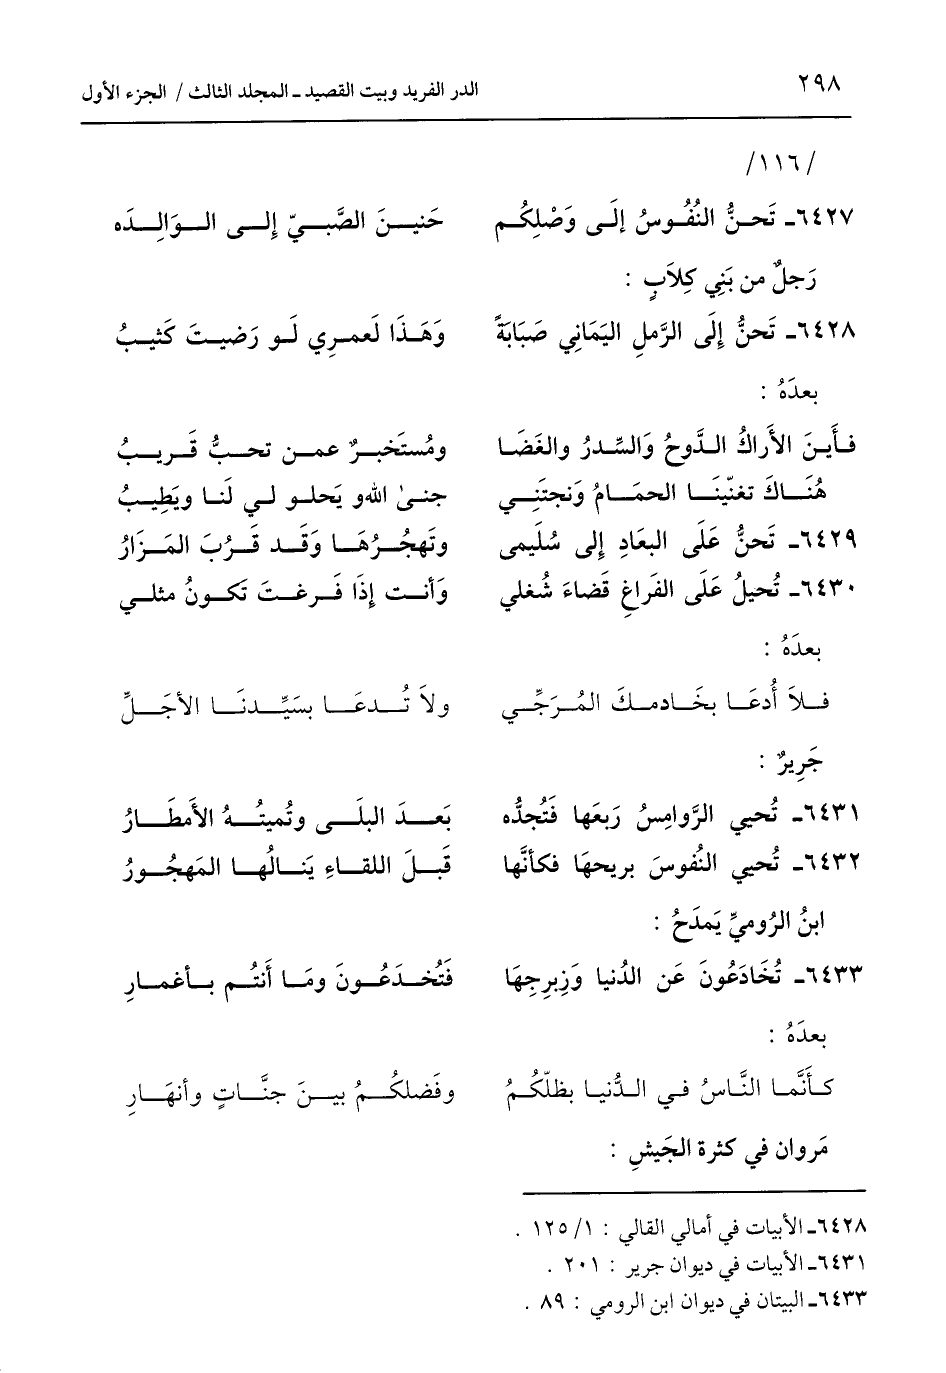 ٢٩٨ الدر الفريد وبيت القصيد ـ المجلد الثالث / الجزء الأول
/١١٦/
٦٤٢٧ـ تَحنُّ النُفُوسُ إلَى وَصْلِكُم حَنيــنَ الصَّبــيّ إلــى الــوَالِــدَه
رَجلٌ من بَنِي كِلاَبٍ :
٦٤٢٨ـ تَحنُّ إلَى الرَّملِ اليَمَاني صَبَابَةً وَهَــذَا لَعمــرِي لَــو رَضيــتَ كَثيــبُ
بعدَهُ :
فــأَيــنَ الأَرَاكُ الــدَّوحُ وَالسِّــدرُ والغَضَــا ومُستَخبــرٌ عمــن تحــبُّ قَــريــبُ
هُنَــاكَ تغنّينَــا الحمَــامُ وَنجتَنِــي جنىٰ اللهوِ يَحلــو لــي لَنــا ويَطِيــبُ
٦٤٢٩ـ تَحنُّ عَلَى البعَادِ إلى سُلَيمى وتَهجُــرُهَــا وَقَــد قَــرُبَ المَــزَارُ
٦٤٣٠ـ تُحيلُ عَلَى الفَراغِ قَضاءَ شُغلي وَأنــت إذَا فَــرغــتَ تَكــونُ مثلــي
بعدَهُ :
فــلاَ أُدعَــا بخَــادمــكَ المُــرَجِّــي ولاَ تُــدعَــا بسَيِّــدنَــا الأجَــلِّ
جَرِيرٌ :
٦٤٣١ـ تُحيي الرَّوامِسُ رَبعَها فَتُجدُّه بَعــدَ البلَــى وتُميتُــهُ الأمطَــارُ
٦٤٣٢ـ تُحيي النُفُوسَ بريحهَا فكأنَّها قَبــلَ اللقــاءِ يَنــالُهــا المَهجُــورُ
ابنُ الرُوميِّ يَمدَحُ :
٦٤٣٣ـ تُخَادَعُونَ عَن الدُنيا وَزِبرِجِهَا فَتُخــدَعُــونَ ومَــا أَنتُــم بــأغمــارِ
بعدَهُ :
كــأَنَّمــا النَّــاسُ فــي الــدُّنيــا بظلّكُــمُ وفَضلكُــمُ بيــنَ جنَّــاتٍ وأنهَــارِ
مَروان في كثرة الجَيشِ :
٦٤٢٨ـ الأبيات في أمالي القالي : ١/ ١٢٥ .
٦٤٣١ـ الأبيات في ديوان جرير : ٢٠١ .
٦٤٣٣ـ البيتان في ديوان ابن الرومي : ٨٩ .